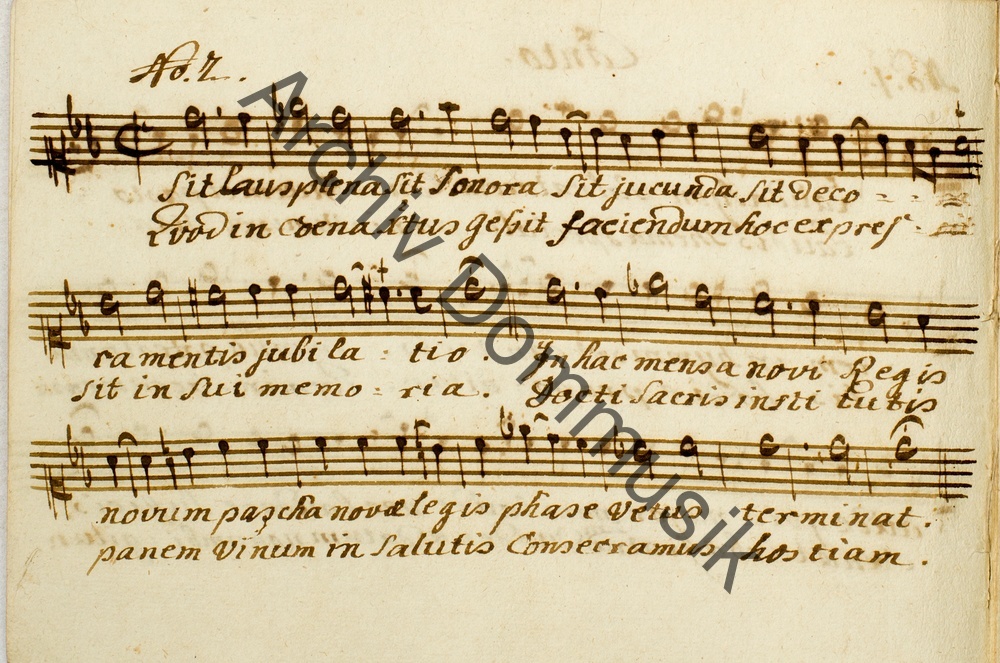 No. 2.
Sit laus plena sit sonora sit jucunda sit deco - -
Quod in Coena Xtus geſsit faciendum hoc expreſ -
ra mentis jubila - tio. In hac mensa novi Regis
sit in sui memo - ria. Docti Sacris insti tutis
novum pascha novæ legis phase vetus terminat.
panem vinum in Salutis Consecramus hostiam.
Archiv Dommusik